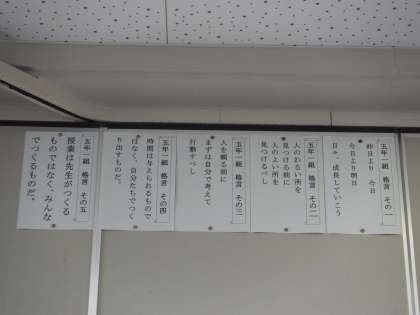 五年一組 格言 その一
昨日より 今日
今日より明日
日々、成長していこう
五年一組 格言 その二
人のわるい所を
見つける前に
人のよい所を
見つけるべし
五年一組 格言 その三
人を頼る前に
まずは自分で考えて
行動すべし
五年一組 格言 その四
時間は与えられるもので
はなく、自分たちでつく
り出すものだ。
五年一組 格言 その五
授業は先生がつくる
ものではなく、みんな
でつくるものだ。